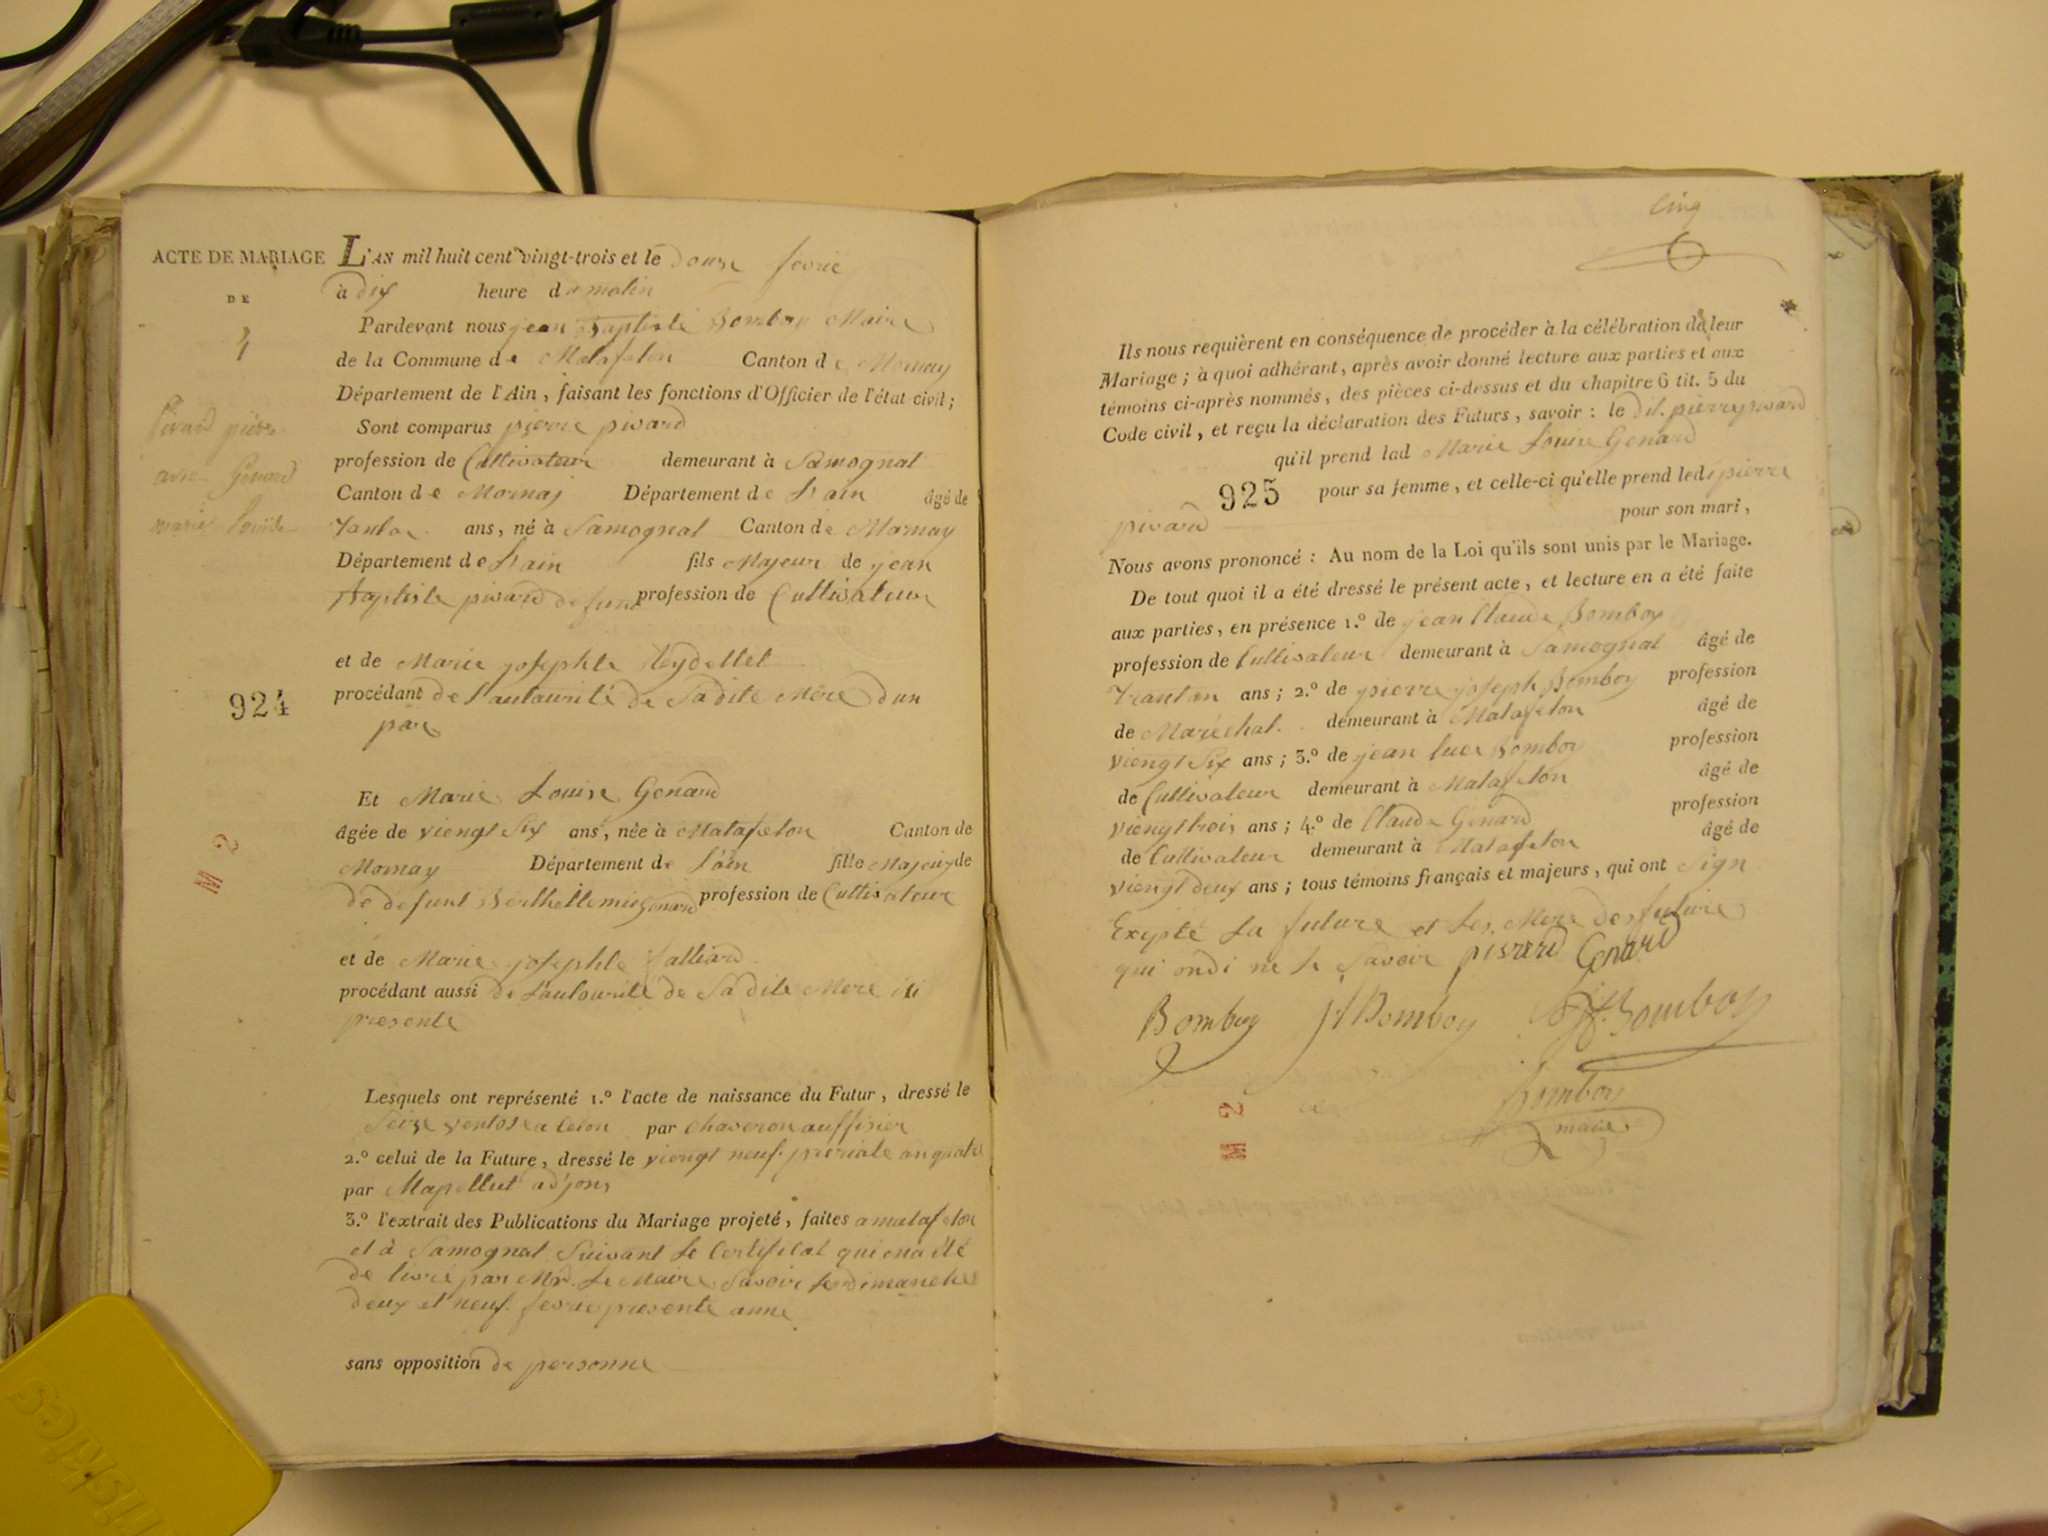 ACTE DE MARIAGE
DE
4
Pivard pierre
avec Genard
marie Louise
924
M 2
L'AN mil huit cent vingt-trois et le douze fevrie
à dix heure du matin
Pardevant nous jean Baptiste Bomboy Maire
de la Commune de Matafelon Canton de Mornay
Département de l'Ain, faisant les fonctions d'Officier de l'état civil;
Sont comparus pierre pivard
profession de Cultivateur demeurant à Samognat
Canton de Mornay Département de L'ain âgé de
ans, né à Samognat Canton de Mornay
Département de L'ain fils Majeur de jean
Baptiste pivard defunt profession de Cultivateur
et de Marie josephte Reydellet
procédant de l'autourité de Sadite Mère d'un
par
Et Marie Louise Genard
âgée de viengt Six ans, née à Matafelon Canton de
Mornay Département de L'ain fille Majeur de
de defunt Berthellemie Genard profession de Cultivateur
et de Marie josephte
procédant aussi de L'autourité de Sadite Mere isi
presente
Lesquels ont représenté 1.º l'acte de naissance du Futur, dressé le
Seize ventose a par auffisier
2.º celui de la Future, dressé le viengt neuf preriale an quatre
par adjons
3.º l'extrait des Publications du Mariage projeté, faites a matafelon
et à Samognat Suivant Le Certificat qui ena été
de livré par Mr. Le Maire Savoir les dimanche
deux et neuf fevrie presente anne
sans opposition de personne
Cinq
Ils nous requièrent en conséquence de procéder à la célébration de leur
Mariage; à quoi adhérant, après avoir donné lecture aux parties et aux
témoins ci-après nommés, des pièces ci-dessus et du chapitre 6 tit. 5 du
Code civil, et reçu la déclaration des Futurs, savoir: le dit. pierre pivard
qu'il prend lad Marie Louise Genard
925 pour sa femme, et celle-ci qu'elle prend led pierre
pivard pour son mari,
Nous avons prononcé: Au nom de la Loi qu'ils sont unis par le Mariage.
De tout quoi il a été dressé le présent acte, et lecture en a été faite
aux parties, en présence 1.º de jean Claude Bomboy
profession de Cultivateur demeurant à Samognat âgé de
ans; 2.º de pierre joseph Bomboy profession
de Maréchal. demeurant à Matafelon âgé de
viengt Six ans; 3.º de jean luce Bomboy profession
de Cultivateur demeurant à Matafelon âgé de
viengt trois ans; 4.º de Claude Genard profession
de Cultivateur demeurant à Matafelon âgé de
viengt deux ans; tous témoins français et majeurs, qui ont Sign
Exepté La future et Les Mere des future
qui ondi ne le Savoir pivard Genard
Bomboy Bomboy Bomboy
Bomboy
maire
M 2